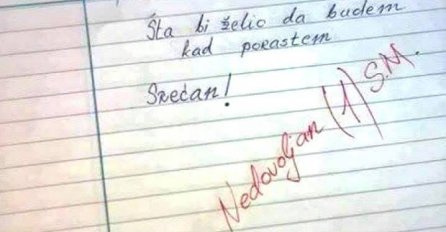 Šta bi želio da budem
kad porastem
Srećan!
Nedovoljan (1) S.M.